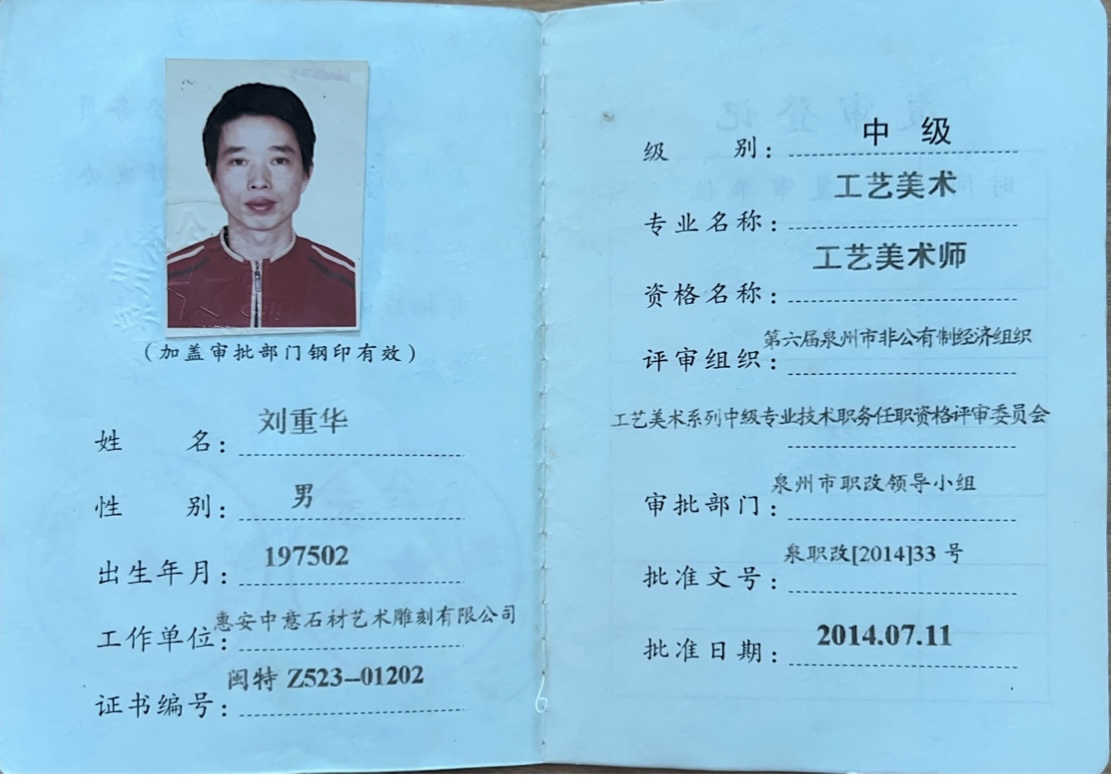 (加盖审批部门钢印有效)
姓 名: 刘重华
性 别: 男
出生年月: 197502
工作单位: 惠安中意石材艺术雕刻有限公司
证书编号: 闽特 Z523--01202
6
级 别: 中 级
专业名称: 工艺美术
资格名称: 工艺美术师
评审组织: 第六届泉州市非公有制经济组织
工艺美术系列中级专业技术职务任职资格评审委员会
审批部门: 泉州市职改领导小组
批准文号: 泉职改[2014]33 号
批准日期: 2014.07.11